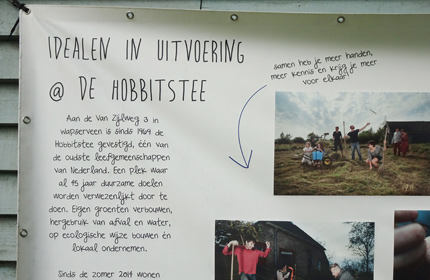 IDEALEN IN UITVOERING
@ DE HOBBITSTEE
samen heb je meer handen,
meer kennis en krijg je meer
voor elkaar!
Aan de Van Zijlweg 3 in
Wapserveen is sinds 1969 de
Hobbitstee gevestigd, één van
de oudste leefgemeenschappen
van Nederland. Een plek waar
al 45 jaar duurzame doelen
worden verwezenlijkt door te
doen. Eigen groenten verbouwen,
hergebruik van afval en water,
op ecologische wijze bouwen én
lokaal ondernemen.
Sinds de zomer 2014 wonen